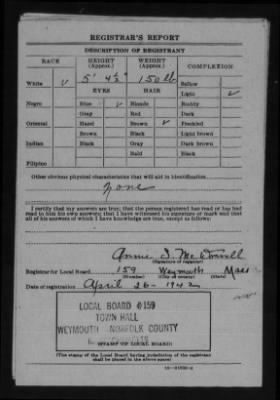 REGISTRAR'S REPORT
DESCRIPTION OF REGISTRANT
RACE HEIGHT (Approx.) WEIGHT (Approx.) COMPLEXION
5' 4½" 150 lb
White v EYES HAIR Sallow
Light v
Negro Blue v Blonde Ruddy
Gray Red Dark
Oriental Hazel Brown v Freckled
Brown Black Light brown
Indian Black Gray Dark brown
Bald Black
Filipino
Other obvious physical characteristics that will aid in identification
None
I certify that my answers are true; that the person registered has read or has had
read to him his own answers; that I have witnessed his signature or mark and that
all of his answers of which I have knowledge are true, except as follows:
Annie
(Signature of registrar)
Registrar for Local Board 159 Weymouth Mass
(Number) (City or county) (State)
Date of registration April 26- 1942
LOCAL BOARD #159
TOWN HALL
WEYMOUTH NORFOLK COUNTY
(STAMP OF LOCAL BOARD)
(The stamp of the Local Board having jurisdiction of the registrant
shall be placed in the above space.)